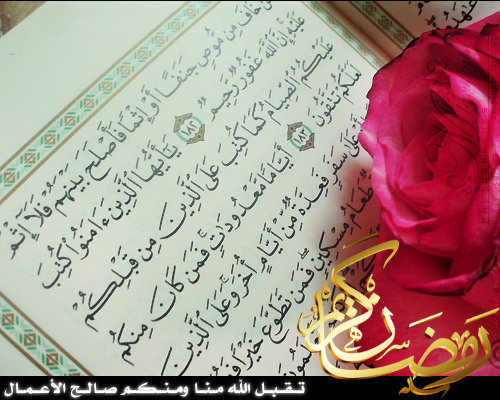 خَافَ مِن مُّوصٍ جَنَفًا أَوْ إِثْمًا فَأَصْلَحَ بَيْنَهُمْ فَلَآ إِثْمَ
عَلَيْهِ إِنَّ ٱللَّهَ غَفُورٌ رَّحِيمٌ ١٨٢ يَٰٓأَيُّهَا ٱلَّذِينَ ءَامَنُوا۟ كُتِبَ
عَلَيْكُمُ ٱلصِّيَامُ كَمَا كُتِبَ عَلَى ٱلَّذِينَ مِن قَبْلِكُمْ
لَعَلَّكُمْ تَتَّقُونَ ١٨٣ أَيَّامًا مَّعْدُودَٰتٍ فَمَن كَانَ مِنكُم
عَلَىٰ سَفَرٍ فَعِدَّةٌ مِّنْ أَيَّامٍ أُخَرَ وَعَلَى ٱلَّذِينَ
طَعَامُ مِسْكِينٍ فَمَن تَطَوَّعَ خَيْرًا
رمضان كريم
تقبل الله منا ومنكم صالح الأعمال